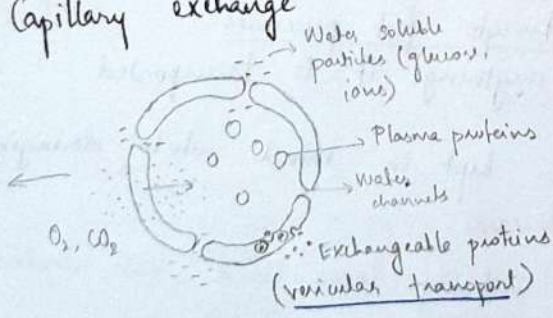 Capillary exchange
Water soluble
particles (glucose,
ions)
Plasma proteins
Water
channels
O₂, CO₂
Exchangeable proteins
(vesicular transport)